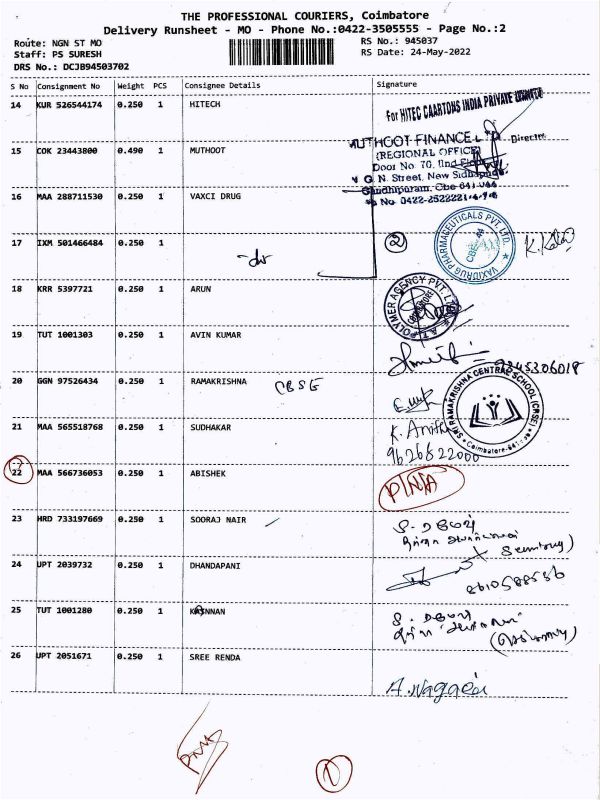 THE PROFESSIONAL COURIERS, Coimbatore
Delivery Runsheet - MO - Phone No.:0422-3505555 - Page No.:2
Route: NGN ST MO
RS No.: 945037
Staff: PS SURESH
RS Date: 24-May-2022
DRS No.: DCJB94503702
S No Consignment No Weight PCS Consignee Details Signature
14 KUR 526544174 0.250 1 HITECH
For HITEC CAARTONS INDIA PRIVATE LIMITED
Director
15 COK 23443800 0.490 1 MUTHOOT
MUTHOOT FINANCE LTD
(REGIONAL OFFICE)
Door No. 70, IInd Floor
N. Street, New Sidhapudur
Gandhipuram, Cbe
No 0422-2522221
16 MAA 288711530 0.250 1 VAXCI DRUG
VAXIDRUG PHARMACEUTICALS PVT. LTD.
CBE
17 IXM 501466484 0.250 1
2
18 KRR 5397721 0.250 1 ARUN
POLYMER AGENCY PVT. LTD
19 TUT 1001303 0.250 1 AVIN KUMAR
9245306018
20 GGN 97526434 0.250 1 RAMAKRISHNA CBSE
SRI RAMAKRISHNA CENTRAL SCHOOL (CBSE)
Coimbatore
21 MAA 565518768 0.250 1 SUDHAKAR
K. Anitha
9626822000
22 MAA 566736053 0.250 1 ABISHEK
23 HRD 733197669 0.250 1 SOORAJ NAIR
24 UPT 2039732 0.250 1 DHANDAPANI
25 TUT 1001280 0.250 1 KANNAN
26 UPT 2051671 0.250 1 SREE RENDA
1